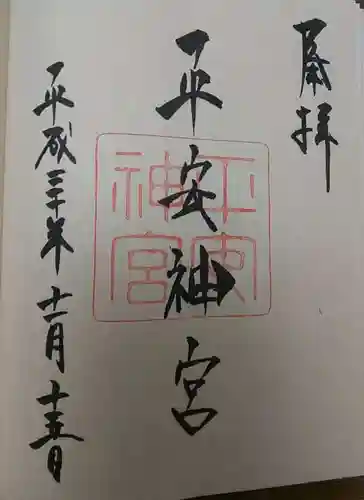 奉拝
平安神宮
平安神宮
平成三十年十一月十五日